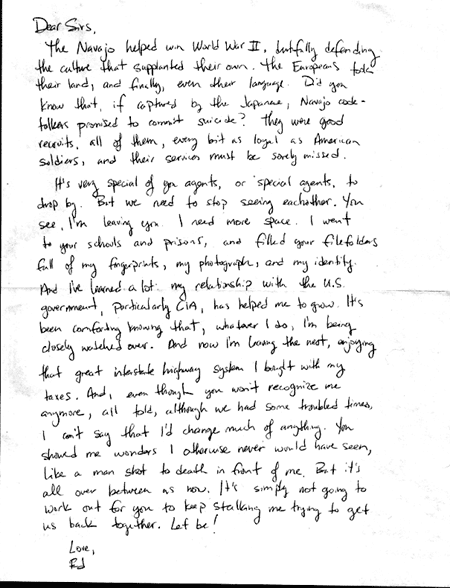 Dear Sirs,
The Navajo helped win World War II, dutifully defending
the culture that supplanted their own. The Europeans took
their land, and finally, even their language. Did you
know that, if captured by the Japanese, Navajo code-
talkers promised to commit suicide? They were good
recruits, all of them, every bit as loyal as American
soldiers, and their services must be sorely missed.
It's very special of you agents, or special agents, to
drop by. But we need to stop seeing eachother. You
see, I'm leaving you. I need more space. I went
to your schools and prisons, and filled your filefolders
full of my fingerprints, my photograph, and my identity.
And I've learned a lot: my relationship with the U.S.
government, particularly CIA, has helped me to grow. It's
been comforting knowing that, whatever I do, I'm being
closely watched over. And now I'm leaving the nest, enjoying
that great interstate highway system I bought with my
taxes. And, even though you won't recognize me
anymore, all told, although we had some troubled times,
I can't say that I'd change much of anything. You
showed me wonders I otherwise never would have seen,
like a man shot to death in front of me. But it's
all over between us now. It's simply not going to
work out for you to keep stalking me trying to get
us back together. Let be!
Love,